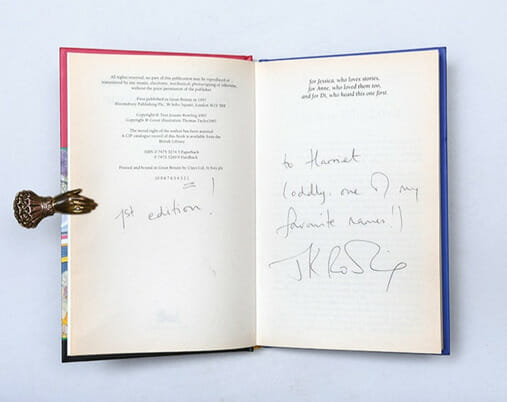 All rights reserved; no part of this publication may be reproduced or
transmitted by any means, electronic, mechanical, photocopying or otherwise,
without the prior permission of the publisher
First published in Great Britain in 1997
Bloomsbury Publishing Plc, 38 Soho Square, London W1V 5DF
Copyright © Text Joanne Rowling 1997
Copyright © Cover illustration Thomas Taylor1997
The moral right of the author has been asserted
A CIP catalogue record of this book is available from the
British Library
ISBN 0 7475 3274 5 Paperback
0 7475 3269 9 Hardback
Printed and bound in Great Britain by Clays Ltd, St Ives plc
10 9 8 7 6 5 4 3 2 1
1st edition!
for Jessica, who loves stories,
for Anne, who loved them too,
and for Di, who heard this one first.
to Harriet
(oddly, one of my
favourite names!)
J K Rowling